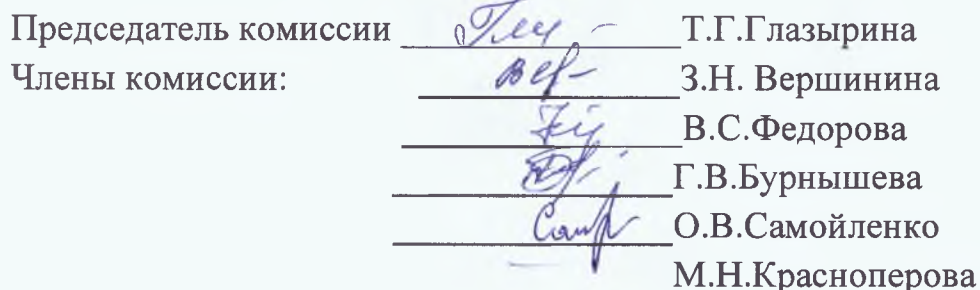 Председатель комиссии Т.Г.Глазырина
Члены комиссии: З.Н. Вершинина
В.С.Федорова
Г.В.Бурнышева
О.В.Самойленко
М.Н.Красноперова